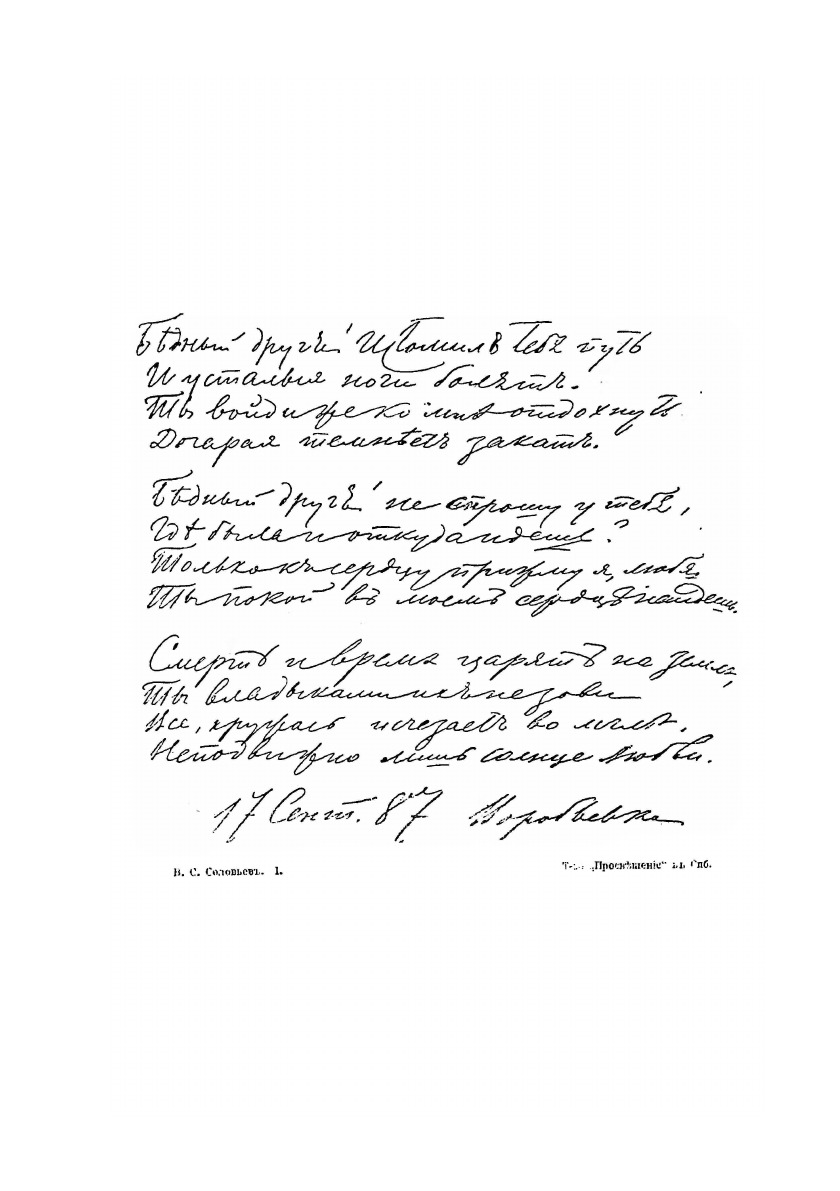 Бѣдный другъ! Истомилъ Тебя путь
И усталыя ноги болятъ.
Ты войди же ко мнѣ отдохнуть
Догорая темнѣетъ закатъ.
Бѣдный другъ! не спрошу у тебя,
Гдѣ была и откуда идешь?
Только къ сердцу прижму я, любя
Ты покой въ моемъ сердцѣ найдешь.
Смерть и время царятъ на земле,
Ты владыками ихъ не зови
Все, кружась исчезаетъ во мглѣ.
Неподвижно лишь солнце любви.
17 Сент. 87 Воробьевка
В. С. Соловьевъ. 1.
„Просвѣщеніе“ въ Спб.